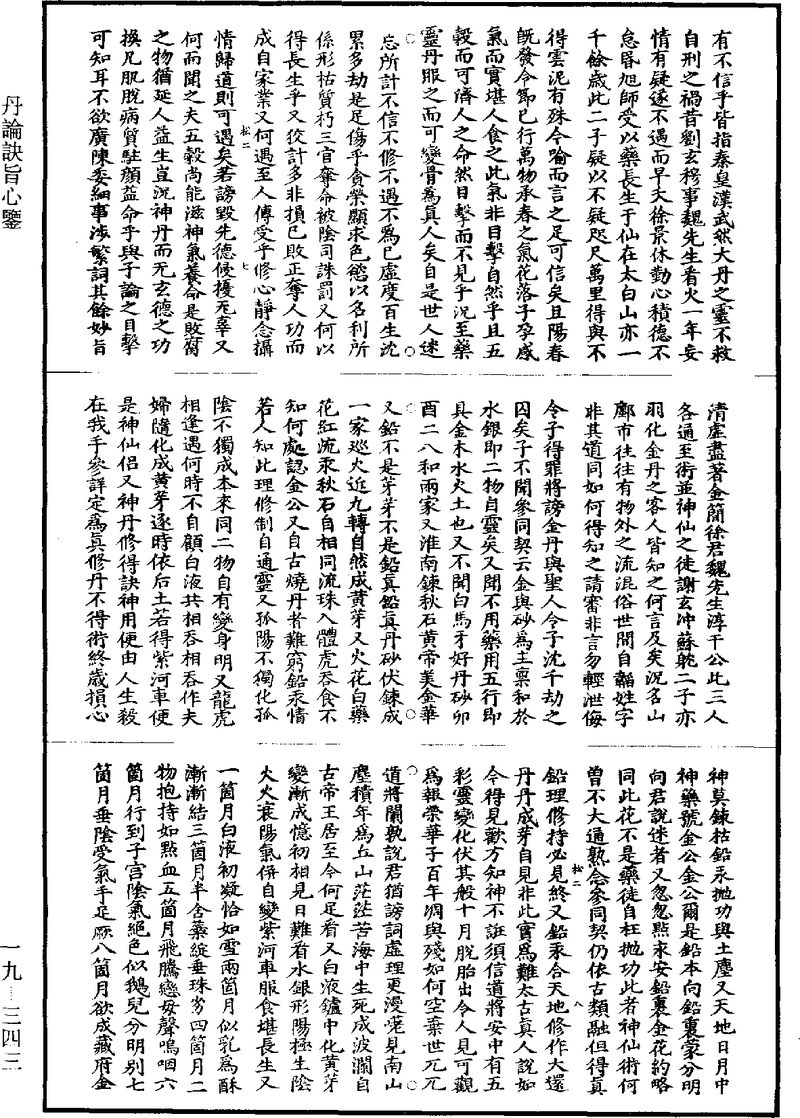 有不信乎皆指秦皇漢武然大丹之靈不救
自刑之禍昔劉玄穆事魏先生看火一年妄
情有疑遂不遇而早夭徐景休勤心積德不
怠昏旭師受以藥長生于仙在太白山亦一
千餘歲此二子疑以不疑咫尺萬里得與不
得雲泥有殊今喻而言之足可信矣且陽春
旣發令節已行萬物承春之氣花落子孕感
氣而實堪人食之此氣非目擊自然乎且五
穀而可濟人之命然目擊而不見乎況至藥
靈丹服之而可變骨爲真人矣自是世人迷
忘所計不信不修不遇不爲已虛度百生沈
累多劫是足傷乎貪榮顯求色慾以名利所
係形枯質朽三官奪命被陰司誅罰又何以
得長生乎又狡計多非損已敗正奪人功而
成自家業又何遇至人傳受乎修心靜念攝
情歸道則可遇矣若謗毀先德侵擾无辜又
何而聞之夫五穀尚能滋神氣養命是敗腐
之物猶延人益生豈況神丹而无玄德之功
換凡肌脫病質駐顏益命乎與子論之目擊
可知耳不欲廣陳委細事涉繁詞其餘妙旨
清虛盡著金簡徐君魏先生淳于公此三人
各通至術並神仙之徒謝玄沖蘇躭二子亦
羽化金丹之客人皆知之何言及矣況名山
鄽市往往有物外之流混俗世間自韜姓字
非其道同如何得知之請審非言勿輕泄侮
令子得罪將謗金丹與聖人令子沈千劫之
因矣子不聞參同契云金與砂爲主稟和於
水銀即二物自靈矣又聞不用藥用五行即
具金木水火土也又不聞白馬牙好丹砂卯
酉二八和兩家又淮南鍊秋石黃帝美金華
又鉛不是芽芽不是鉛真鉛真丹砂伏鍊成
一家巡火近九轉自然成黃芽又火花白藥
花紅流汞秋石自相同流珠入體虎吞食不
知何處認金公又自古燒丹者難窮鉛汞情
若人知此理修制自通靈又孤陽不獨化孤
陰不獨成本來同二物自有變身明又龍虎
相逢遇何時不自顧白液共相吞相吞作夫
婦隨化成黃芽逐時依后土若得紫河車便
是神仙侶又神丹修得訣神用便由人生殺
在我手參詳定爲真修丹不得術終歲損心
神莫鍊枯鉛汞拋功與土塵又天地日月中
神藥號金公金公爾是鉛本向鉛裏蒙分明
向君說迷者又忽忽點汞安鉛裏金花約略
同此花不是藥徒自枉拋功此者神仙術何
曽不大通熟念參同契仍依古類融但得真
鉛理修持必見終又鉛汞合天地修作大還
丹丹成芽自見非此實爲難太古真人說如
今得見歡方知神不誑須信道將安中有五
彩靈變化伏其般十月脫胎出令人見可觀
爲報榮華子百年凋與殘如何空棄世兀兀
道將闌執說君猶謗詞虛理更漫嘵見南山
塵積年爲丘山茫茫苦海中生死成波瀾自
古帝王居至今何足看又白液鑪中化黃芽
變漸成憶初相見日難看水銀形陽極生陰
火火衰陽氣併自變紫河車服食堪長生又
一箇月白液初凝恰如雪兩箇月似乳爲酥
漸漸結三箇月半含藥綻垂珠劣四箇月二
物抱持如點血五箇月飛騰戀母聲嗚咽六
箇月行到子宮陰氣絕色似鵝兒分明別七
箇月垂陰受氣手足厥八箇月欲成藏府金
松二
七
松二
八
丹論訣旨心鑒
一九—三四三